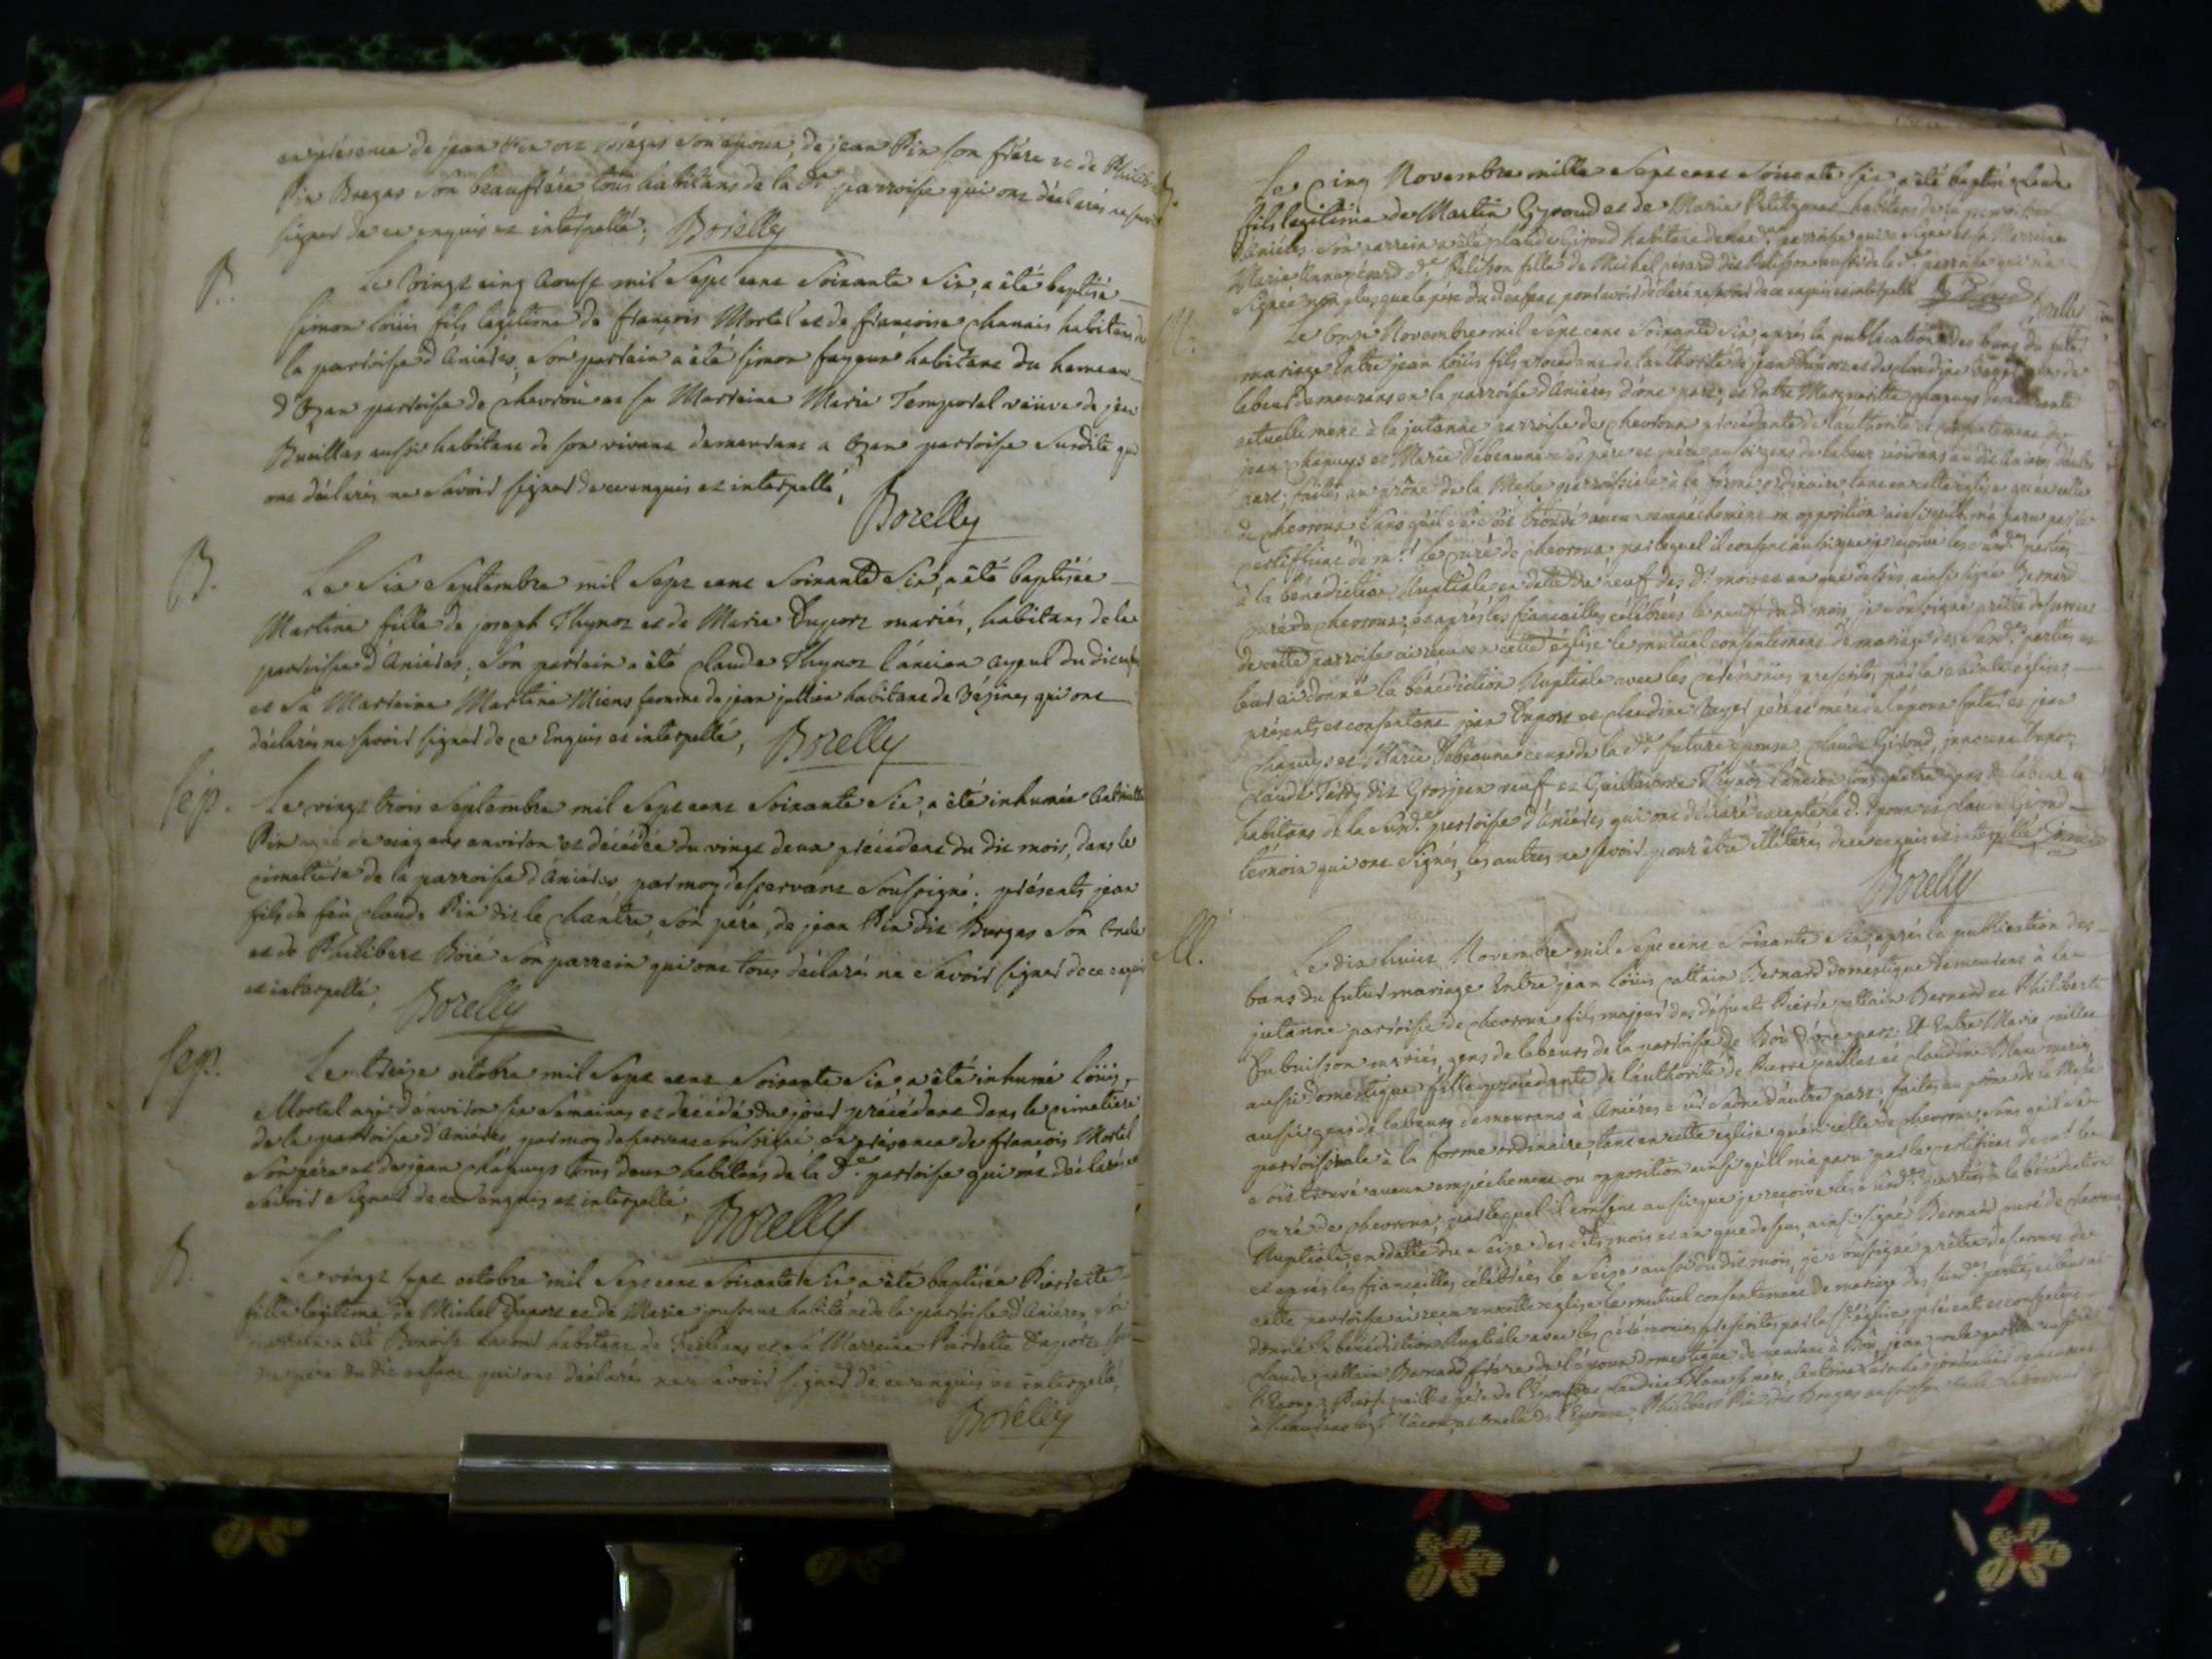 en présence de jean Pin dit Brégas son époux, de jean Pin son frère et de Philib
Pin Bregas son beaufrère tous habitans de la dte parroisse qui ont déclarés ne savoir
signer de ce enquis et interpellé, Borelly
B. Le vingt cinq Aoust mil sept cent soixante six, a été baptisé
simon loüis fils legitime de françois Mortel et de francoise Chanais habitans de
la parroisse d'Anières, son parrain a été simon habitant du hameau
d'Ozan parroisse de chevroux et sa Marraine Marie Temporal veuve de jean
Bueillas aussi habitant de son vivant demeurant a Ozan parroisse susdite qui
ont déclarés ne savoir signer de ce enquis et interpellé,
Borelly
B. Le six Septembre mil sept cent soixante six, a été baptisée
Martine fille de joseph Thynoz et de Marie Duport mariés, habitans de la
parroisse d'Anières, son parrain a été claude Thynoz l'ancien ayeul du dit enfant
et sa Marraine Martine Miens femme de jean jullien habitant de Vésines qui ont
déclarés ne savoir signer de ce Enquis et interpellé, Borelly
sep. Le vingt trois Septembre mil sept cent soixante six, a été inhumée
Pin agée de cinq ans environ et décédée du vingt deux précédent du dit mois, dans le
cimetière de la parroisse d'Anières, par moy desservant soussigné; présents jean
fils de feu claude Pin dit le chantre, son père, de jean Pin dit Burgas son oncle
et de Philibert Boié son parrain qui ont tous déclarés ne savoir signer de ce enquis
et interpellé, Borelly
sep. Le treize octobre mil sept cent soixante six a été inhumé loüis
Mortel agé d'environ six semaines et decedé du jour précédent dans le cimetiere
de la parroisse d'Anières par moy desservant soussigné en présence de francois Mortel
son père et de jean chapuys tous deux habitans de la dte parroisse qui ont déclarés ne
savoir signer de ce enquis et interpellé, Borelly
B. Le vingt sept octobre mil sept cent soixante six a été baptisée Pierrette
fille legitime de Michel Duport et de Marie habitans de la parroisse d'Anières, son
parrain a été Benoist habitant de et sa Marraine Pierrette Duport
du dit enfant qui ont déclarés ne savoir signer de ce enquis et interpellé,
Borelly
B. Le cinq Novembre mille sept cent soixante six a été baptisé claude
fils legitime de Martin Gyroud et de Marie habitans de la parroisse
d'Anières. Son parrain a été claude Giroud habitant de la dte parroisse qui a signé et sa Marraine
Marie Anne pérard dte Pelisson fille de Michel pérard dit Pelisson aussi de la dte parroisse qui n'a
signé non plus que le père du enfant pour avoir déclaré ne savoir de ce enquis et interpellé Borelly
M. Le onze Novembre mil sept cent soixante six après la publication des bans du futur
mariage Entre jean loüis fils procedant de l'authorité de jean Duport et de claudine
labeur demeurans en la parroisse d'Anières d'une part; et Entre Margueritte chapuys demeurante
actuellement à la jutanne parroisse de chevroux procédante de l'authorité et consentement de
jean chapuys et Marie Debeaune ses père et mère aussi gens de labeur residans au dit Anières d'autre
part; faites au prône de la Messe parroissiale à la forme ordinaire, tant en cette église qu'en celle
de chevroux sans qu'il se soit trouvé aucun empêchement ou opposition ainsi qu'il m'a paru par le
certifficat de mr le curé de chevroux par lequel il consent aussi que je reçoive les susdtes parties
à la bénédiction Nuptiale en datte du neuf des dt mois et an que dessus ainsi signé Bernard
curé de chevroux; et après les fiancailles célébrées le neuf du dt mois, je soussigné prêtre desservant
de cette parroisse ai reçu en cette église le mutuel consentement de mariage des susdtes parties et
leur ai donné la bénédiction Nuptiale avec les cérémonies prescrites par la sainte eglise;
présents et consentans jean Duport et claudine Bayet père et mère de l'époux futur et jean
chapuys et Marie Debeaune ceux de la dte future épouse. claude Giroud,
claude dit Grosjean neuf et Guillaume Thynoz l'ancien tous quatre gens de labeur et
habitans de la susdte parroisse d'Anières qui ont déclaré excepté le d. époux et claude Giroud
temoin qui ont signés, les autres ne savoir pour être illiterés de ce enquis et interpellé
Borelly
M. Le dix huit Novembre mil sept cent soixante six, après la publication des
bans du futur mariage Entre jean loüis pattain Bernard domestique demeurant à la
jutanne parroisse de chevroux fils majeur des défunts Pierre pattain Bernard et Philiberte
Dubuisson mariés, gens de labeurs de la parroisse de d'une part. Et Entre Marie
aussi domestique fille procédante de l'authorité de Pierre et claudine Blanc mariés
aussi gens de labeurs demeurans à Anières sur Saône d'autre part, faites au prône de la Messe
parroissiale à la forme ordinaire, tant en cette eglise qu'en celle de chevroux, sans qu'il se
soit trouvé aucun empêchement ou opposition ainsi qu'il m'a paru par le certificat de mr le
curé de chevroux, par lequel il consent aussi que je reçoive les susdtes parties à la bénédiction
Nuptiale, en datte du seize des dits mois et an que dessus, ainsi signé Bernard curé de chevroux,
et après les fiancailles célébrées le seize aussi du dit mois, je soussigné prêtre desservant de
cette parroisse ai reçu en cette eglise le mutuel consentement de mariage des susdtes parties et leur ai
donné la bénédiction Nuptiale avec les cérémonies prescrites par la ste église; présents et consentans
claude pattain Bernard frère de l'époux domestique demeurant à jean
l'Epoux, Pierre père de l'Epouse claudine Blanc sa mère, Antoine
oncle de l'Epouse, Philibert Pin dit Bregas aussi